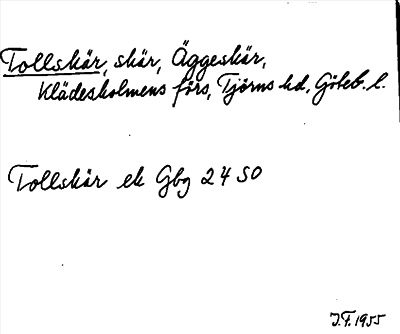 Tollskär, skär, Äggeskär,
Klädesholmens förs, Tjörns hd, Göteb. l.
Tollskär ek Gbg 24 SO
J.F. 1955